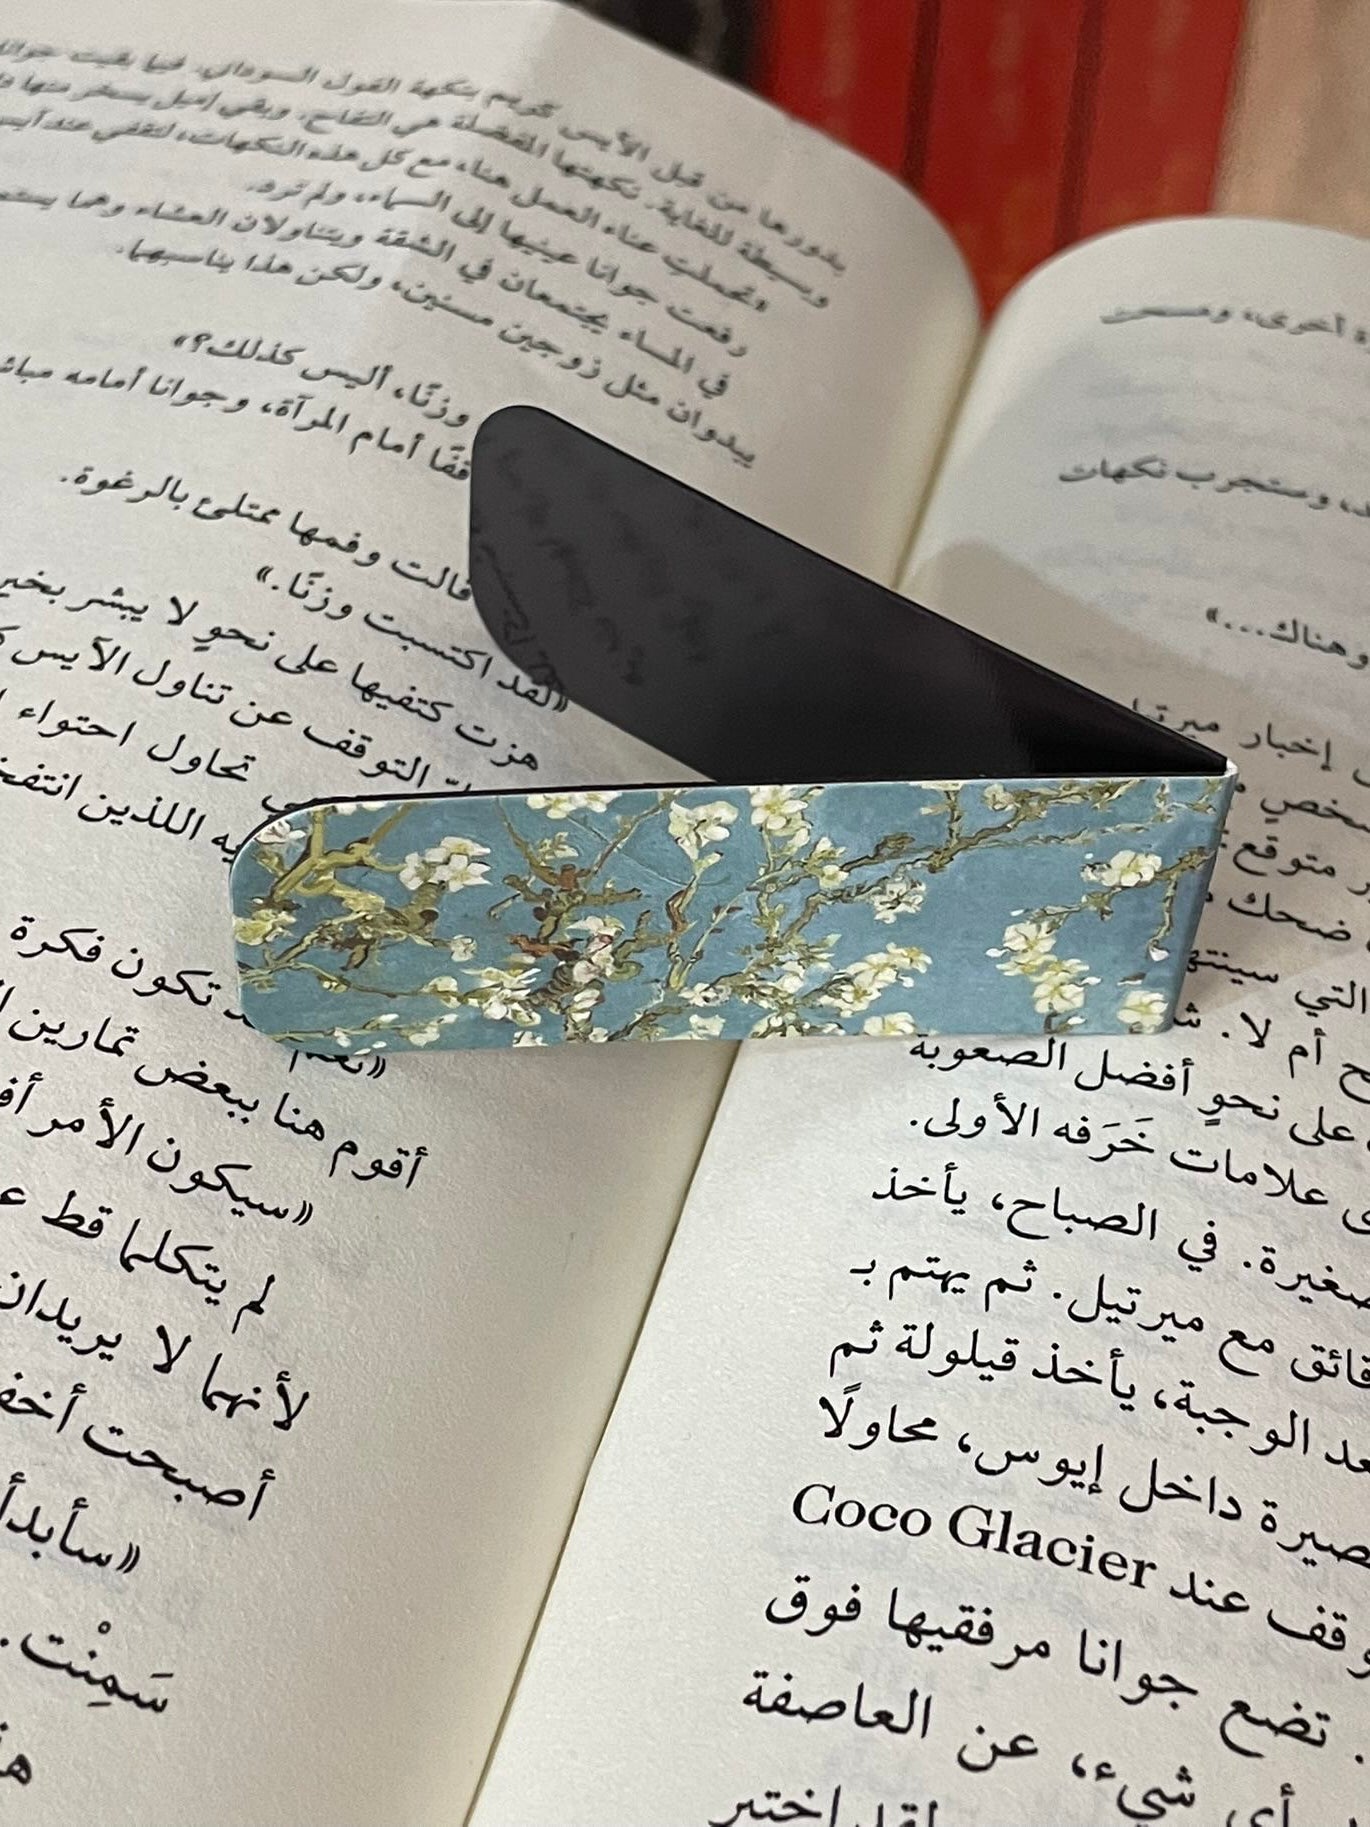 ة أخرى، و
، وستجرب نكهات
وهناك...»
إخبار ميرتيل
شخصٍ
متوقع:
ضحك
التي سينته
أم لا.
على نحوٍ أفضل الصعوبة
علامات خَرَفه الأولى.
صغيرة. في الصباح، يأخذ
قائق مع ميرتيل. ثم يهتم بـ
عد الوجبة، يأخذ قيلولة ثم
صيرة داخل إيوس، محاولًا
وقف عند Coco Glacier
. تضع جوانا مرفقيها فوق
أي شيء، عن العاصفة
لقد اختبر
بدورها من قبل الآيس كريم بنكهة الفول السوداني. فيما بقيت جوانا
وبسيطة للغاية. نكهتها المفضلة هي التفاح. وبقي إميل يسخر منها
«تحملت عناء العمل هنا، مع كل هذه النكهات، لتقفي عند
رفعت جوانا عينيها إلى السماء، ولم ترد.
في المساء يجتمعان في الشقة ويتناولان العشاء وهما
يبدوان مثل زوجين مسنين، ولكن هذا يناسبهما.
وزنًا، أليس كذلك؟»
أمام المرآة، وجوانا أمامه
قالت وفمها ممتلئ بالرغوة.
«لقد اكتسبت وزنًا.»
هزت كتفيها على نحوٍ لا يبشر بخير
التوقف عن تناول الآيس
تحاول احتواء
اللذين
تكون فكرة
«نعم
أقوم هنا ببعض تمارين
«سيكون الأمر
لم يتكلما قط
لأنهما لا يريدان
أصبحت
«سأبدأ
سَمِنْت.